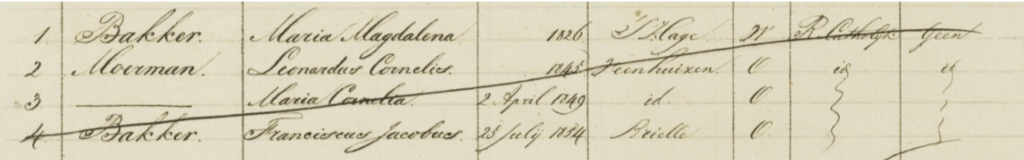 1 Bakker. Maria Magdalena 1826 's Hage W R. Catholyk Geen
2 Moerman. Leonardus Cornelis. 1845 Veenhuizen. O id id
3 ——— Maria Cornelia. 2 April 1849 id. O
4 Bakker. Franciscus Jacobus. 25 July 1854 Brielle O.